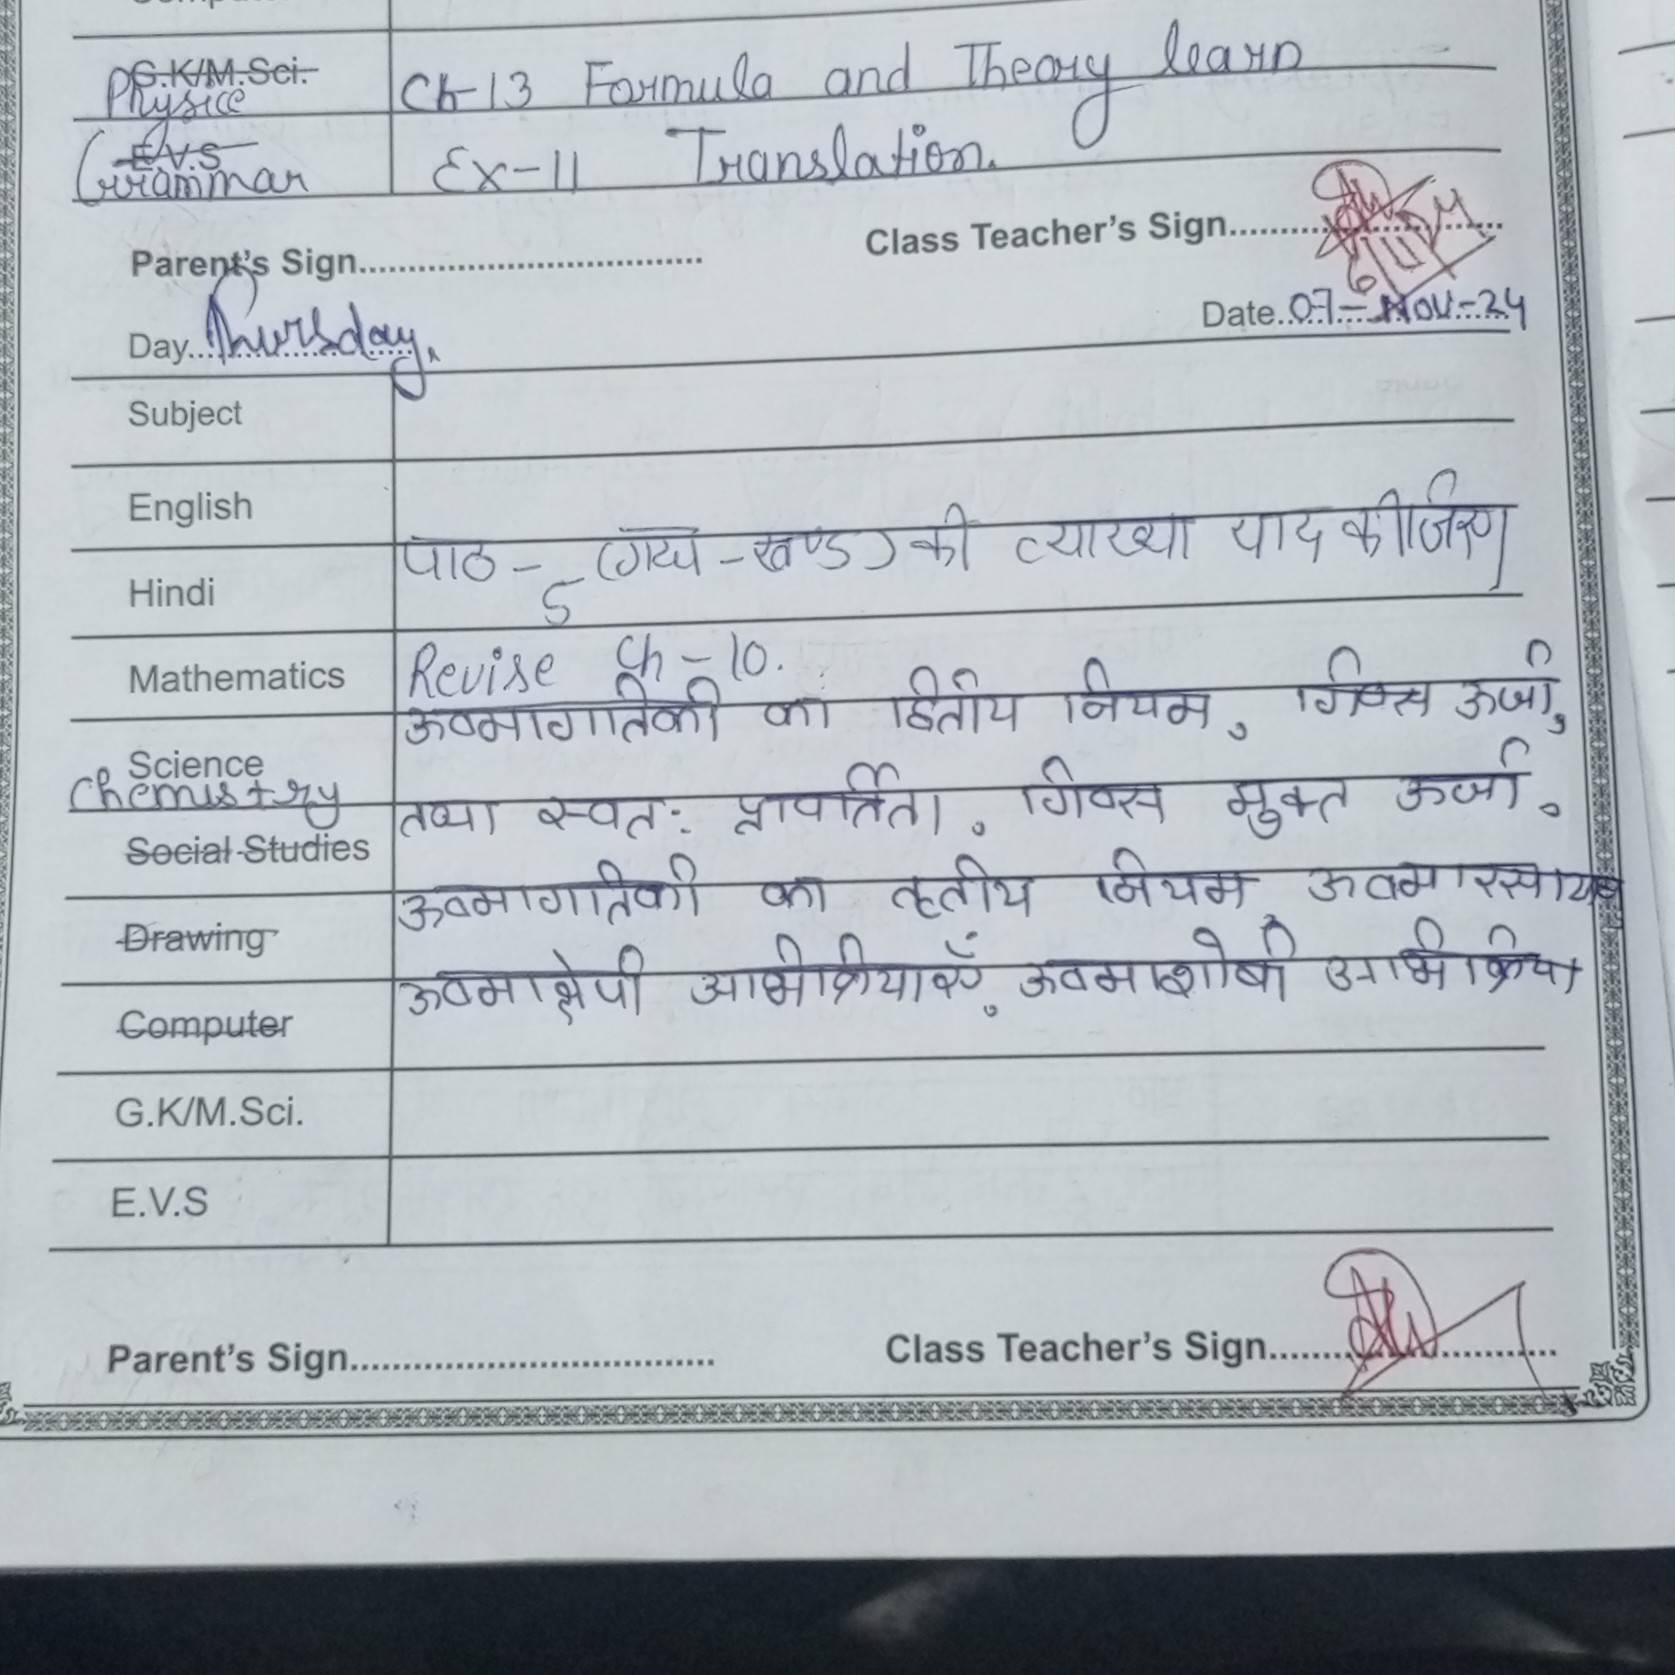 G.K/M.Sci.
Physice Ch-13 Formula and Theory learn
E.V.S
Grammar Ex-11 Translation.
Parent's Sign.................................. Class Teacher's Sign..........................
Day...Thursday. Date..07-Nov-24
Subject
English
Hindi पाठ-5 (गद्य-खण्ड) की व्याख्या याद कीजिए
Mathematics Revise Ch-10.
ऊष्मागतिकी का द्वितीय नियम, गिब्स ऊर्जा,
Science
Chemistry तथा स्वतः प्रवर्तिता, गिब्स मुक्त ऊर्जा,
Social Studies
ऊष्मागतिकी का तृतीय नियम
Drawing
ऊष्माक्षेपी अभिक्रियाएँ, ऊष्माशोषी अभिक्रिया
Computer
G.K/M.Sci.
E.V.S
Parent's Sign.................................... Class Teacher's Sign............................